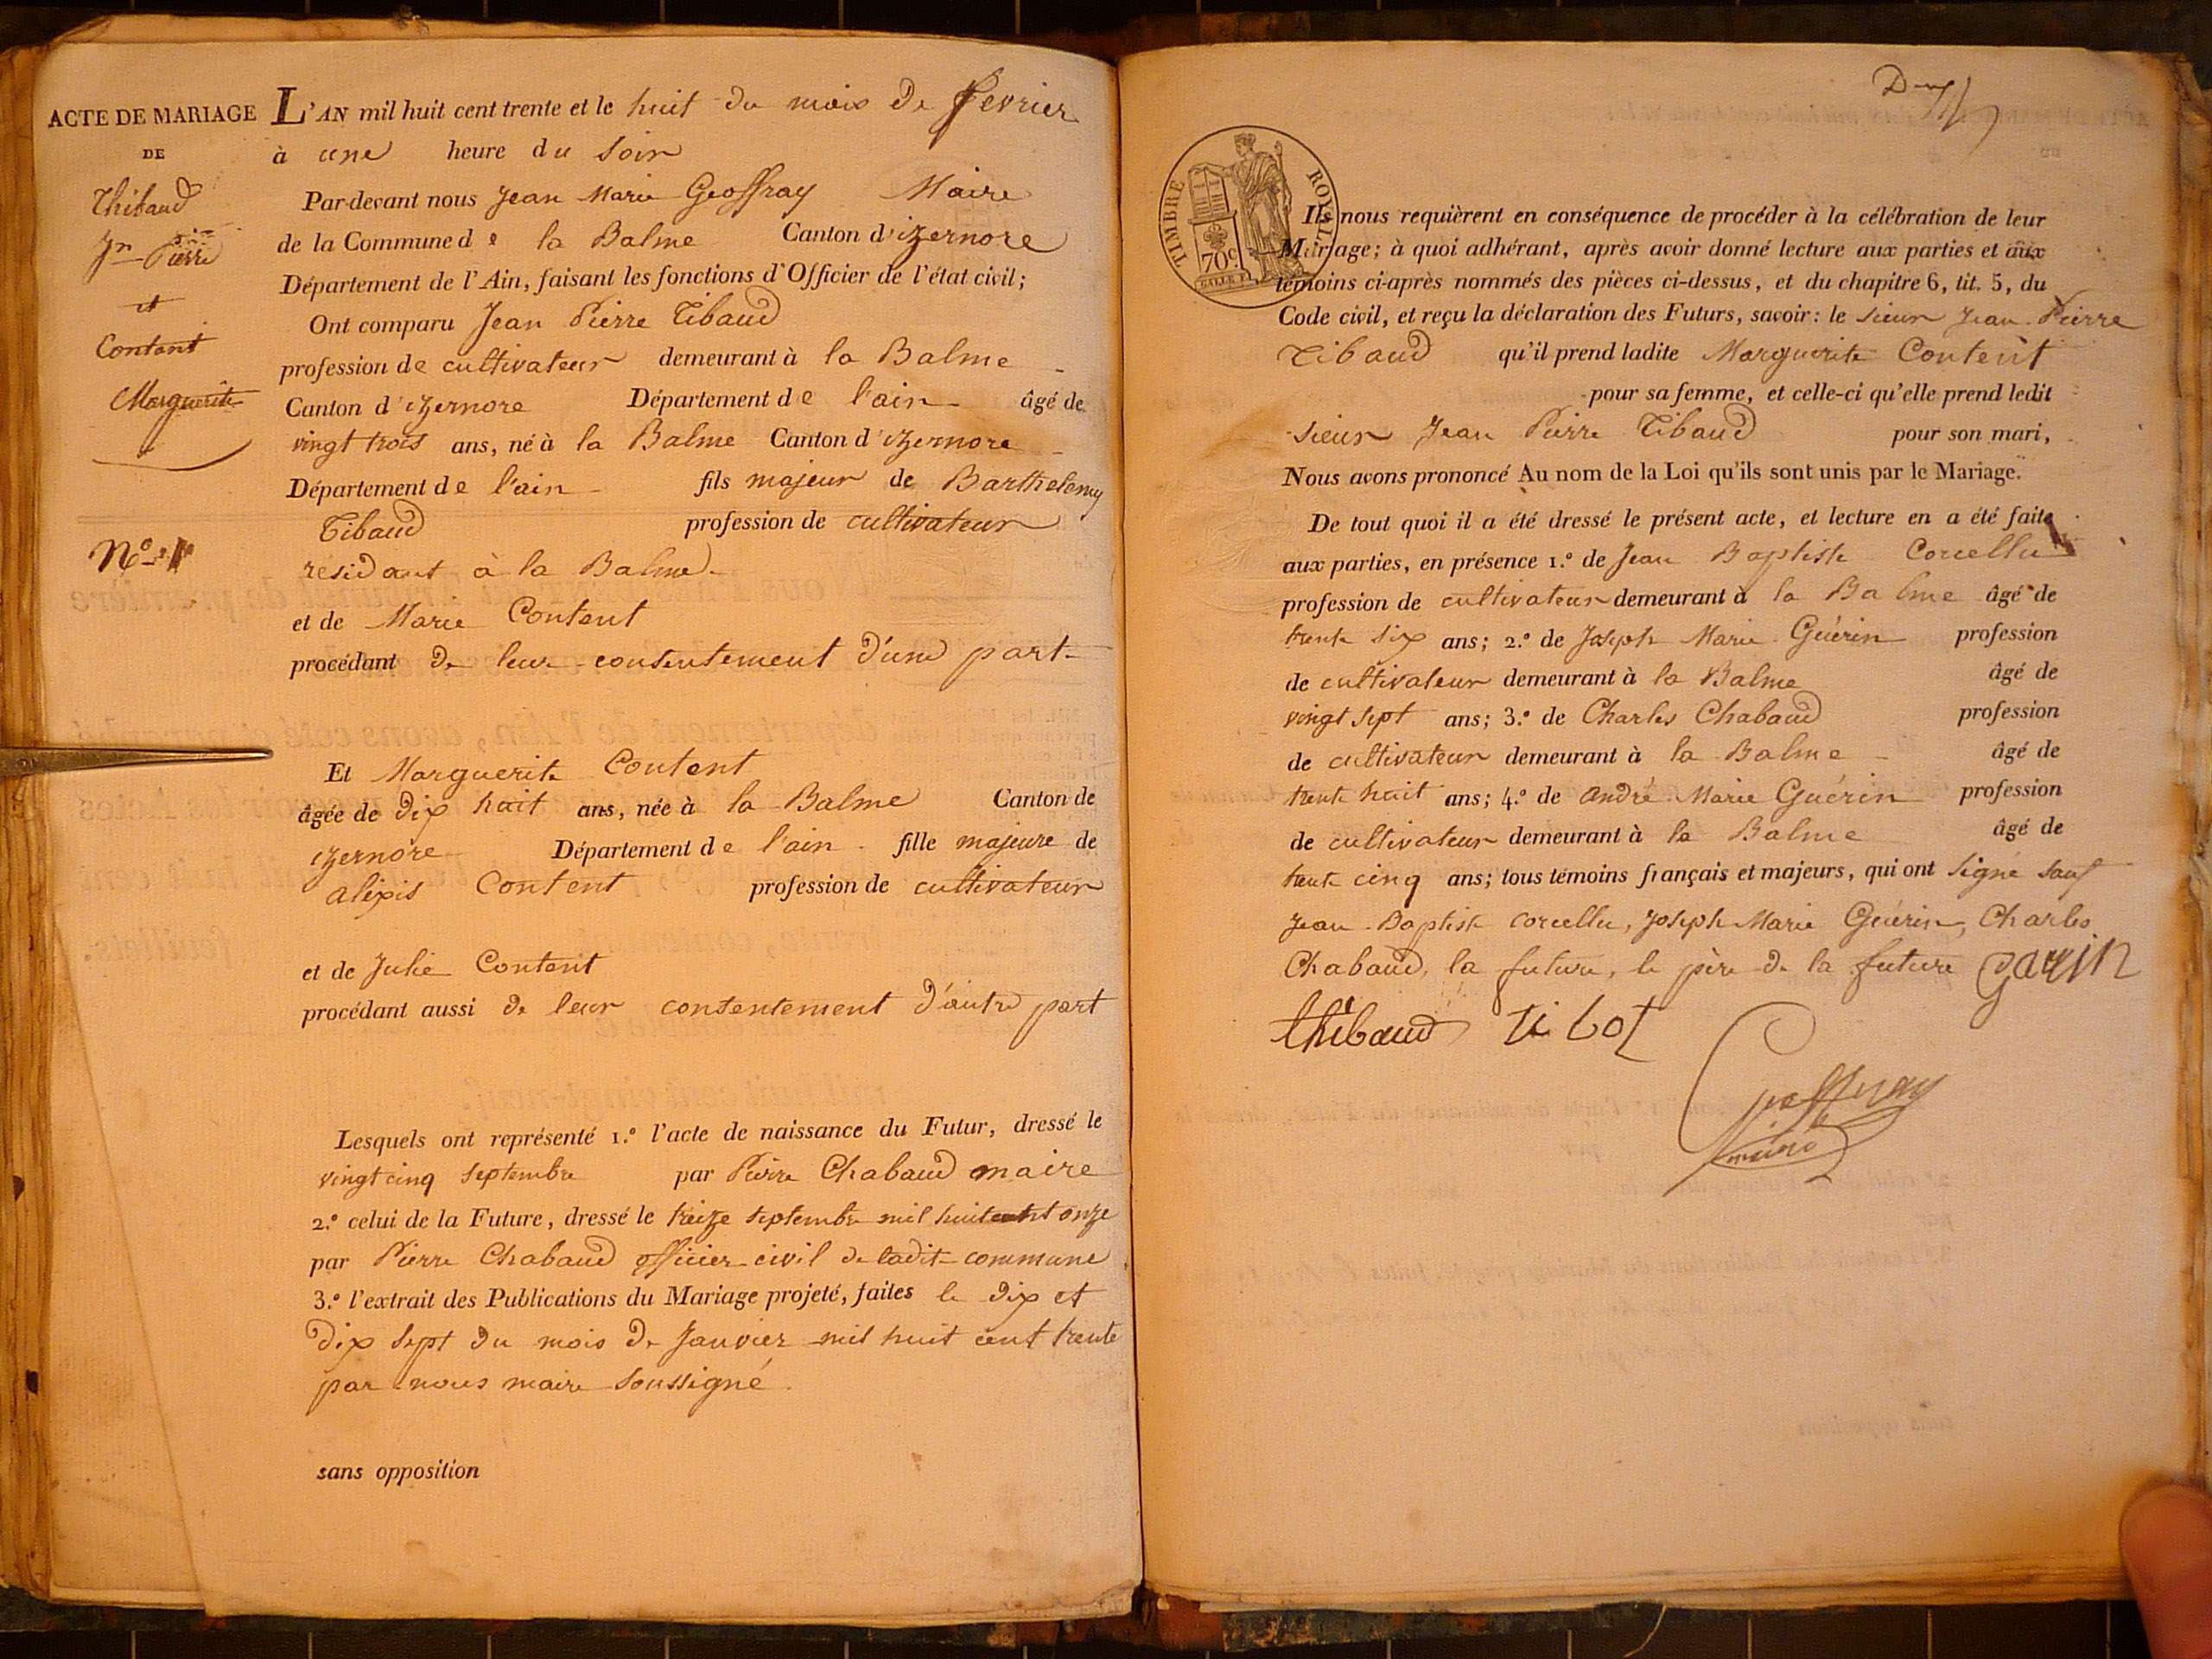 ACTE DE MARIAGE
DE
Thibaud
Jn Pierre
et
Content
Marguerite
N.º 1
L'AN mil huit cent trente et le huit du mois de fevrier
à une heure du soir
Par-devant nous Jean Marie Geoffray Maire
de la Commune de la Balme Canton d'izernore
Département de l'Ain, faisant les fonctions d'Officier de l'état civil;
Ont comparu Jean Pierre Tibaud
profession de cultivateur demeurant à la Balme
Canton d'izernore Département de l'ain âgé de
vingt trois ans, né à la Balme Canton d'izernore
Département de l'ain fils majeur de Barthelemy
Tibaud profession de cultivateur
résidant à la Balme
et de Marie Content
procédant de leur consentement d'une part
Et Marguerite Content
âgée de dix huit ans, née à la Balme Canton de
izernore Département de l'ain fille majeure de
alexis Content profession de cultivateur
et de Julie Content
procédant aussi de leur consentement d'autre part
Lesquels ont représenté 1.º l'acte de naissance du Futur, dressé le
vingt cinq septembre par Pierre Chabaud maire
2.º celui de la Future, dressé le treize septembre mil huit cent onze
par Pierre Chabaud officier civil de ladite commune
3.º l'extrait des Publications du Mariage projeté, faites le dix et
dix sept du mois de Janvier mil huit cent trente
par nous maire soussigné
sans opposition
TIMBRE ROYAL
70c
Ils nous requièrent en conséquence de procéder à la célébration de leur
Mariage; à quoi adhérant, après avoir donné lecture aux parties et aux
témoins ci-après nommés des pièces ci-dessus, et du chapitre 6, tit. 5, du
Code civil, et reçu la déclaration des Futurs, savoir: le sieur Jean Pierre
Tibaud qu'il prend ladite Marguerite Content
pour sa femme, et celle-ci qu'elle prend ledit
sieur Jean Pierre Tibaud pour son mari,
Nous avons prononcé Au nom de la Loi qu'ils sont unis par le Mariage.
De tout quoi il a été dressé le présent acte, et lecture en a été faite
aux parties, en présence 1.º de Jean Baptiste Corcellu
profession de cultivateur demeurant à la Balme âgé de
trente six ans; 2.º de Joseph Marie Guérin profession
de cultivateur demeurant à la Balme âgé de
vingt sept ans; 3.º de Charles Chabaud profession
de cultivateur demeurant à la Balme âgé de
trente huit ans; 4.º de andré Marie Guérin profession
de cultivateur demeurant à la Balme âgé de
trente cinq ans; tous témoins français et majeurs, qui ont signé sauf
Jean Baptiste corcellu, Joseph Marie Guérin, Charles
Chabaud, la future, le père de la future
thibaud Ti bot
Geoffray
maire